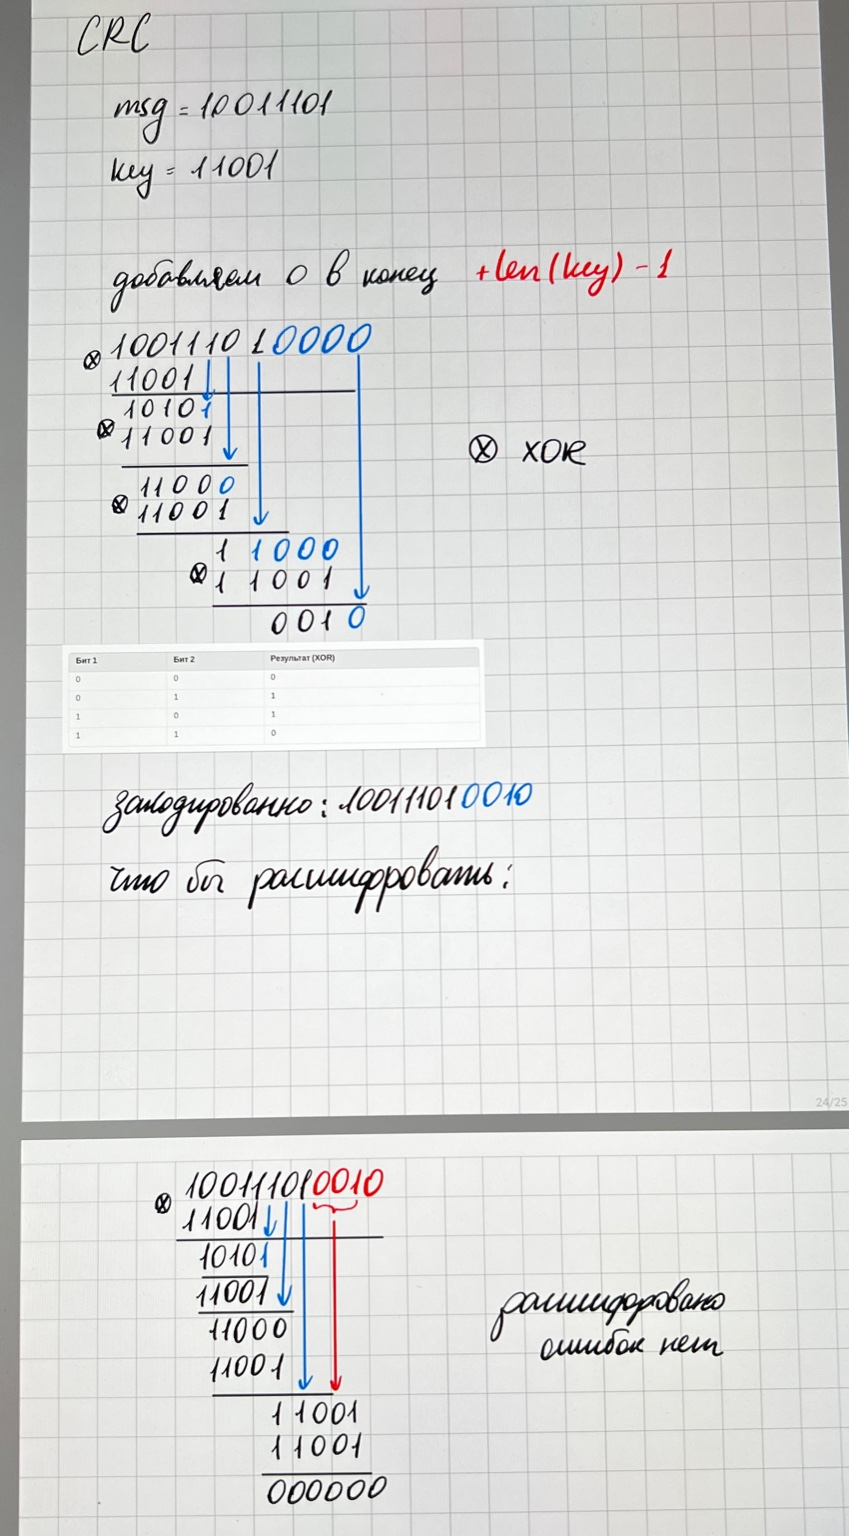 CRC
msg = 10011101
key = 11001
добавляем 0 в конец +len(key) - 1
⊗ 100111010000
11001
10101
⊗ 11001
⊗ XOR
11000
⊗ 11001
11000
⊗ 11001
0010
Бит 1 Бит 2 Результат (XOR)
0 0 0
0 1 1
1 0 1
1 1 0
закодированно: 100111010010
что бы расшифровать:
24/25
100111010010
⊗ 11001
10101
11001
11000
11001
11001
11001
000000
расшифровано
ошибок нет